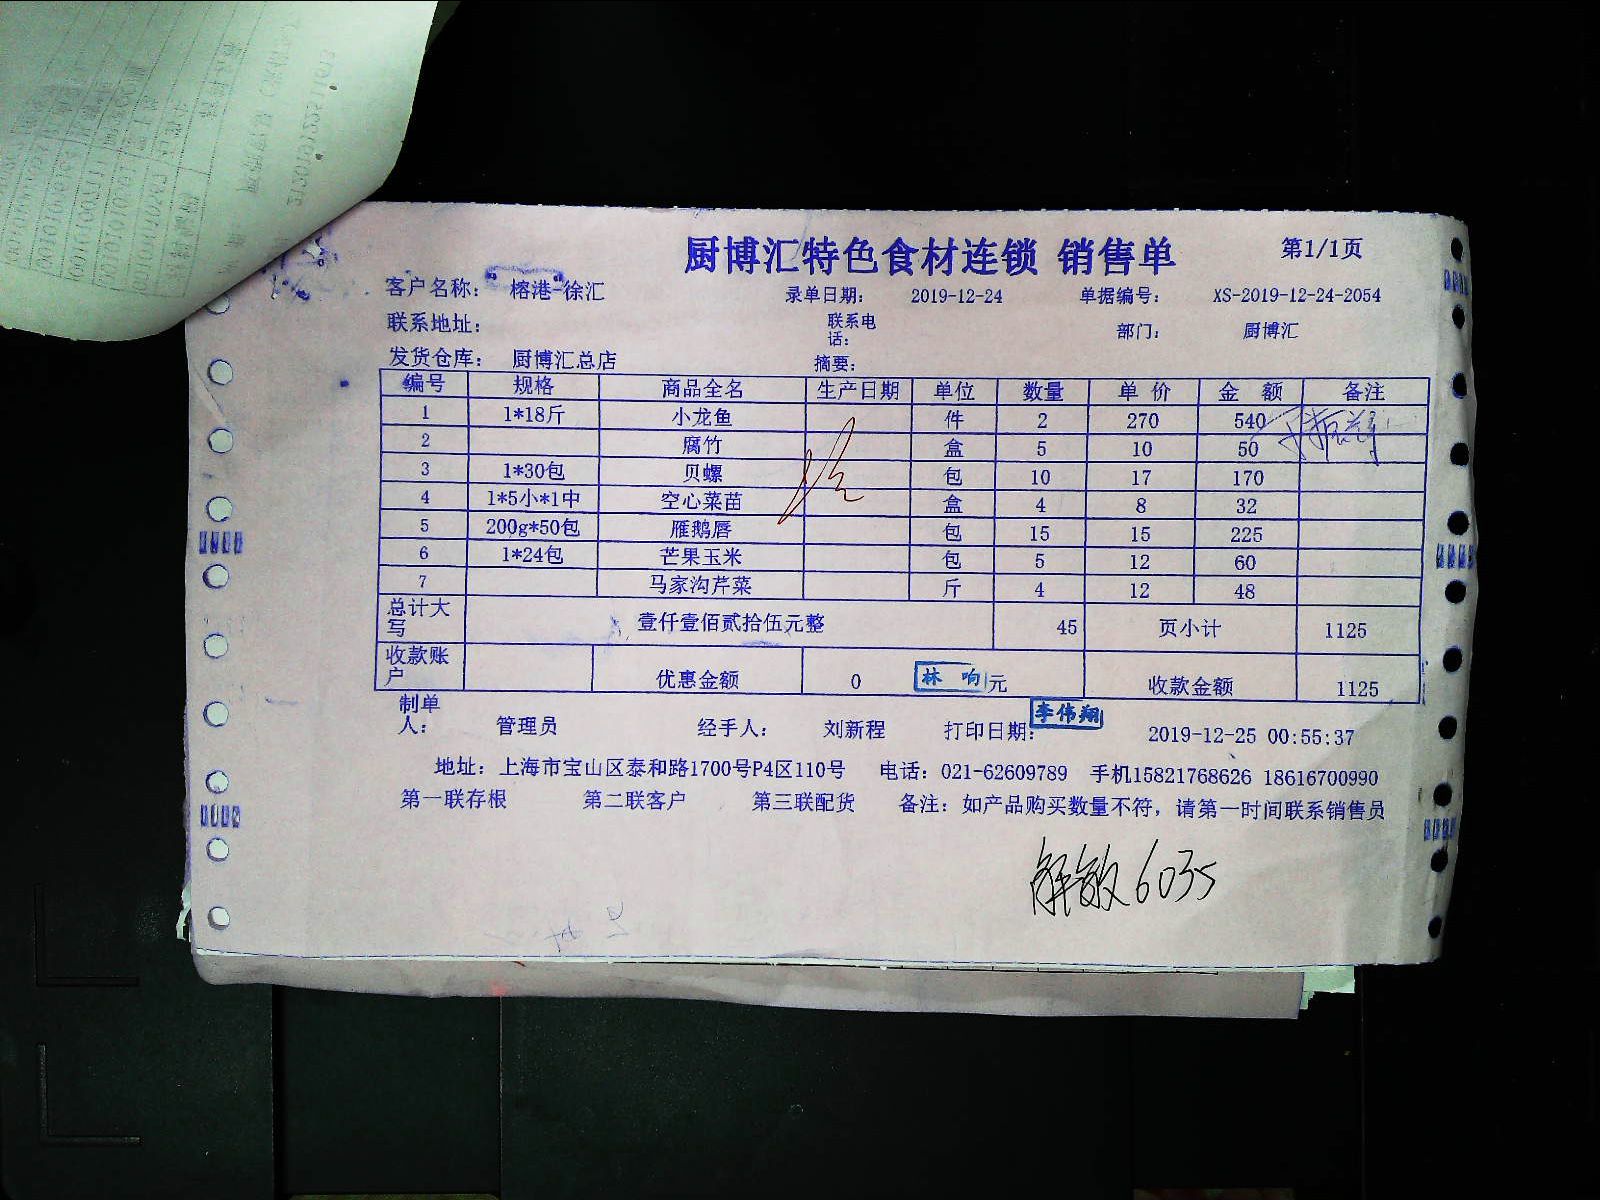 厨博汇特色食材连锁 销售单 第1/1页
客户名称: 榕港-徐汇 录单日期: 2019-12-24 单据编号: XS-2019-12-24-2054
联系地址: 联系电话: 部门: 厨博汇
发货仓库: 厨博汇总店 摘要:
编号 规格 商品全名 生产日期 单位 数量 单 价 金 额 备注
1 1*18斤 小龙鱼 件 2 270 540
2 腐竹 盒 5 10 50
3 1*30包 贝螺 包 10 17 170
4 1*5小*1中 空心菜苗 盒 4 8 32
5 200g*50包 雁鹅唇 包 15 15 225
6 1*24包 芒果玉米 包 5 12 60
7 马家沟芹菜 斤 4 12 48
总计大写 壹仟壹佰贰拾伍元整 45 页小计 1125
收款账户 优惠金额 0 林响 元 收款金额 1125
李伟翔
制单人: 管理员 经手人: 刘新程 打印日期: 2019-12-25 00:55:37
地址: 上海市宝山区泰和路1700号P4区110号 电话: 021-62609789 手机15821768626 18616700990
第一联存根 第二联客户 第三联配货 备注: 如产品购买数量不符, 请第一时间联系销售员
解敏6035